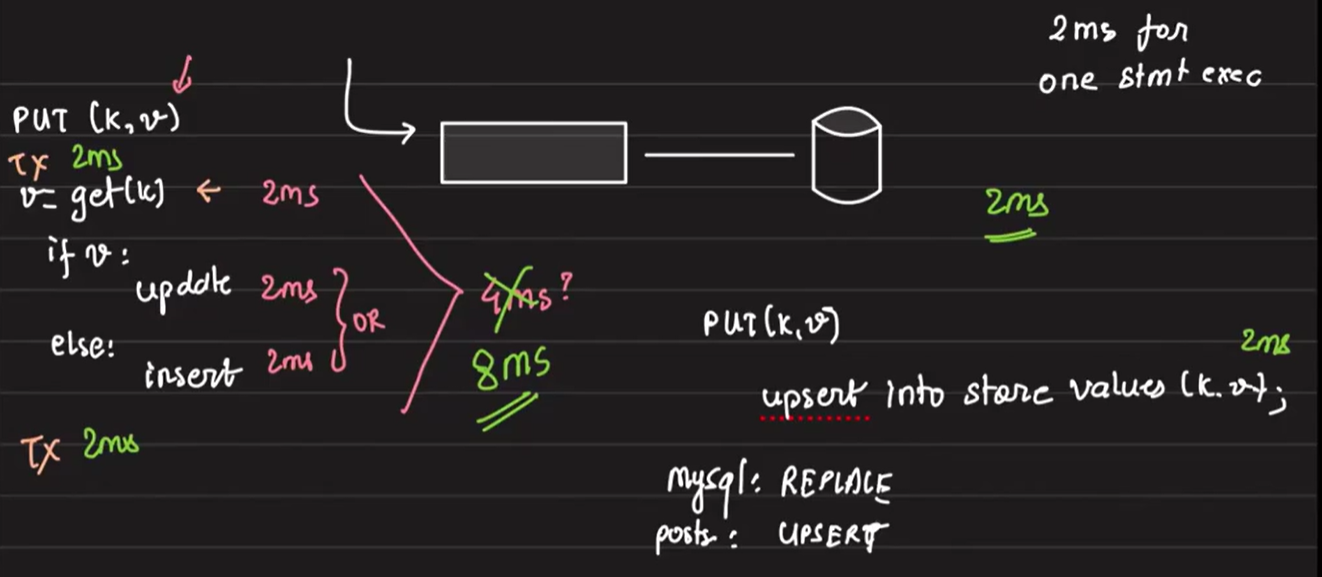 2ms for
one stmt exec
PUT (k, v)
TX 2ms
v = get(k) ← 2ms
2ms
if v:
update 2ms
OR
4ms?
else:
insert 2ms
8ms
PUT(k,v)
2ms
upsert into store values (k.v);
TX 2ms
mysql: REPLACE
posts: UPSERT